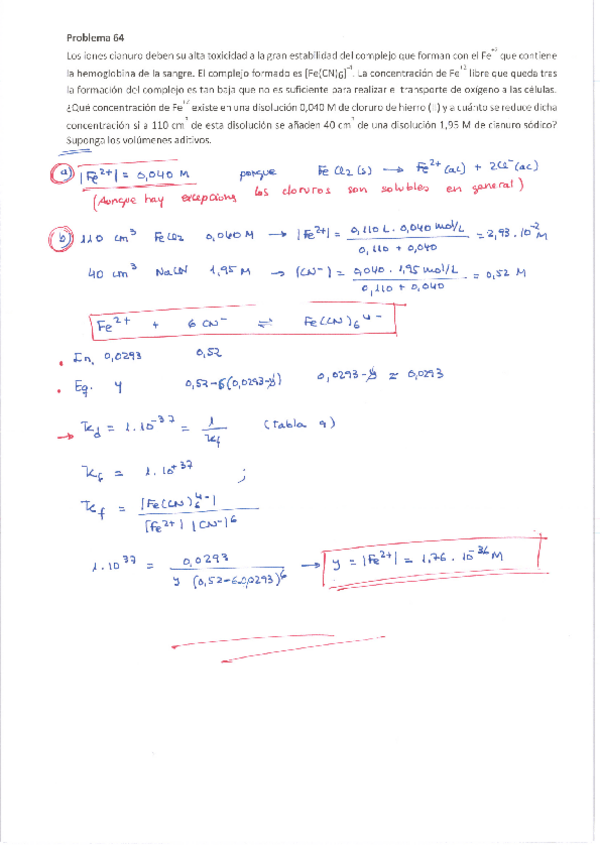 Problema 64
Los iones cianuro deben su alta toxicidad a la gran estabilidad del complejo que forman con el Fe+2 que contiene
la hemoglobina de la sangre. El complejo formado es [Fe(CN)6]-4. La concentración de Fe+2 libre que queda tras
la formación del complejo es tan baja que no es suficiente para realizar el transporte de oxígeno a las células.
¿Qué concentración de Fe+2 existe en una disolución 0,040 M de cloruro de hierro (II) y a cuánto se reduce dicha
concentración si a 110 cm3 de esta disolución se añaden 40 cm3 de una disolución 1,95 M de cianuro sódico?
Suponga los volúmenes aditivos.
a) |Fe2+| = 0,040 M porque FeCl2 (s) → Fe2+ (ac) + 2Cl- (ac)
(Aunque hay excepciones los cloruros son solubles en general)
b) 110 cm3 FeCl2 0,040 M → |Fe2+| = 0,110 L · 0,040 mol/L / 0,110 + 0,040 = 2,93 · 10-2 M
40 cm3 NaCN 1,95 M → (CN-) = 0,040 · 1,95 mol/L / 0,110 + 0,040 = 0,52 M
Fe2+ + 6 CN- ⇌ Fe(CN)6 4-
• In. 0,0293 0,52
• Eq. y 0,52-6(0,0293-y) 0,0293-y ≈ 0,0293
→ Kd = 1·10-37 = 1/Kf (tabla 9)
Kf = 1·10+37 ;
Kf = |Fe(CN)6 4-| / |Fe2+| |CN-|6
1·10 37 = 0,0293 / y (0,52-6·0,0293)6 → y = |Fe2+| = 1,76 · 10-36 M